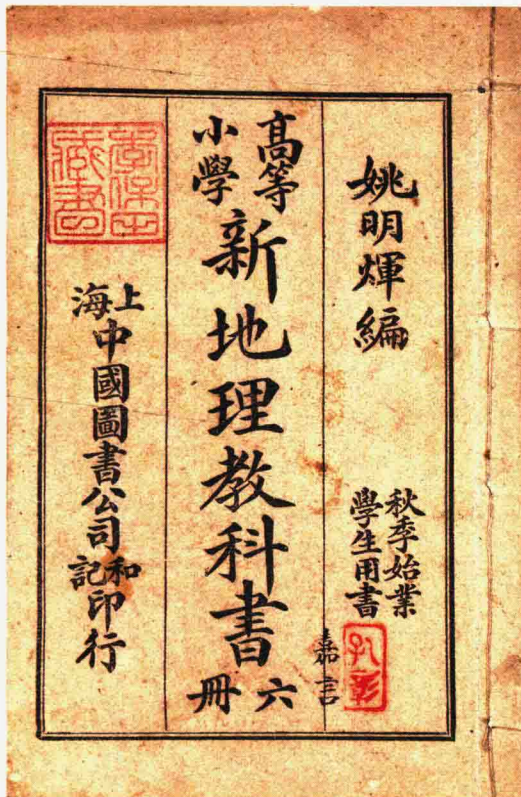 姚明煇編
秋季始業
學生用書
嘉言
孔彰
高等
小學
新地理教科書
六冊
上海
中國圖書公司
和記
印行